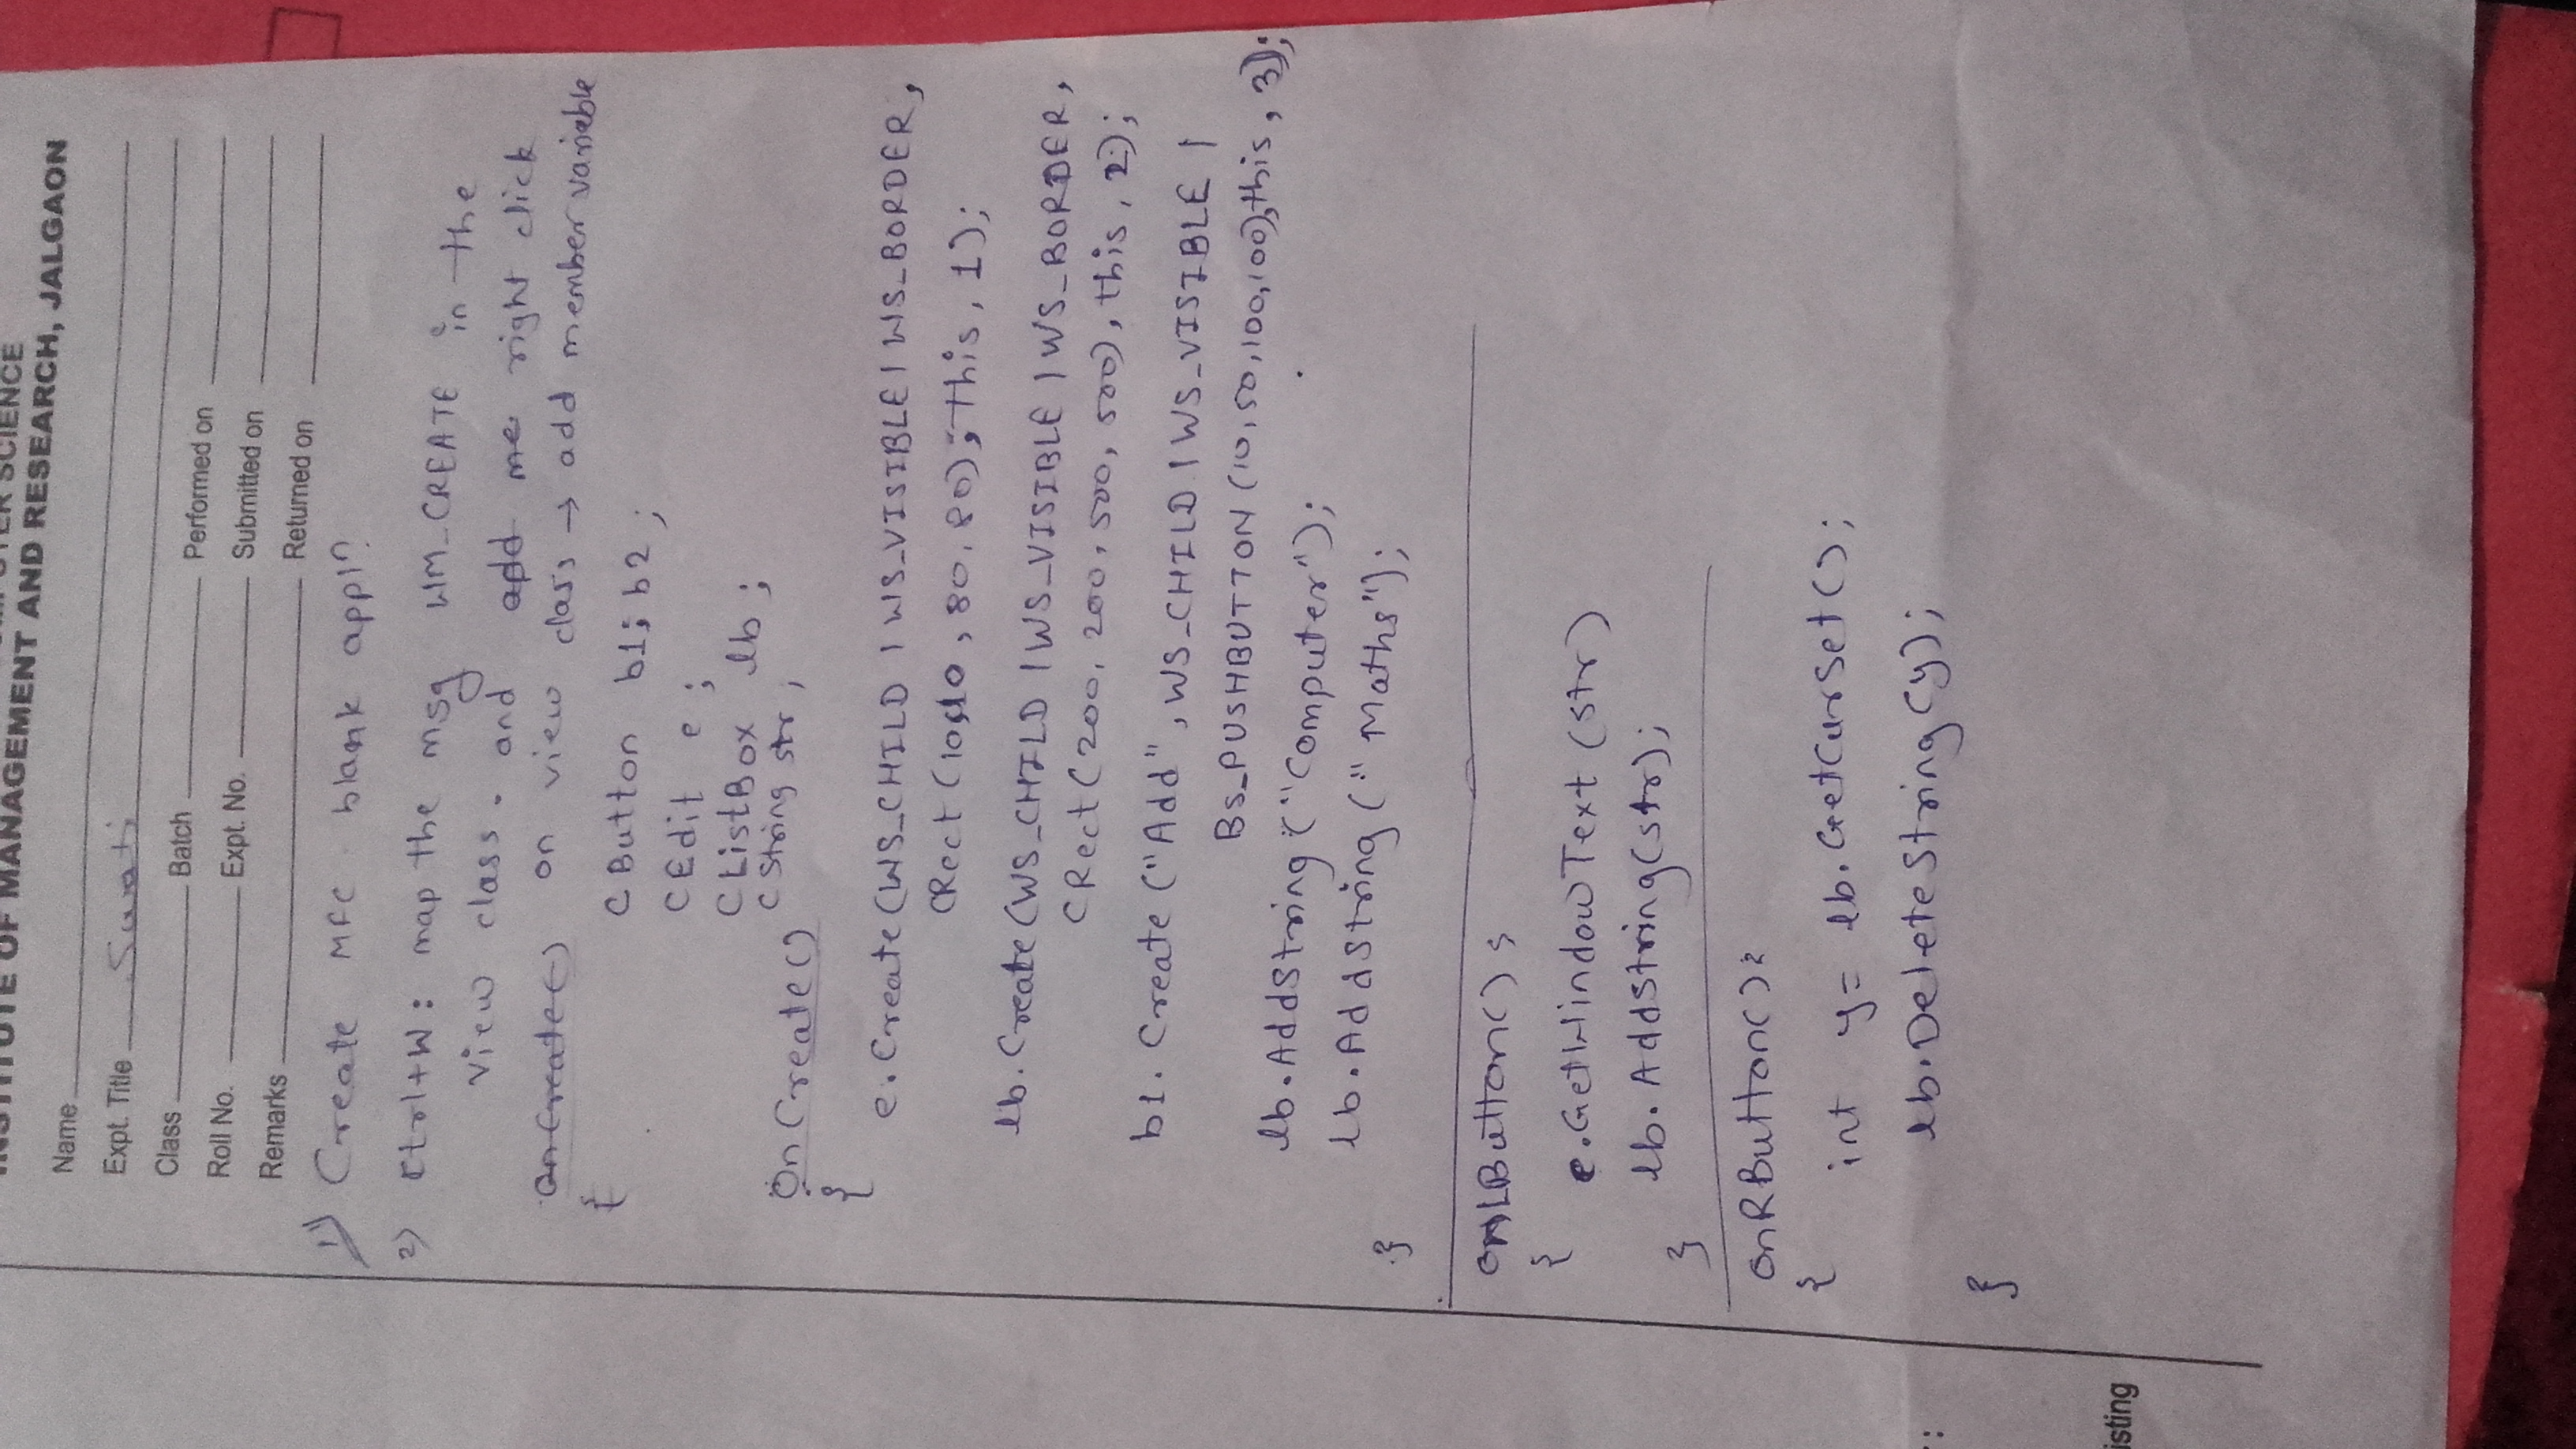 SCIENCE
INSTITUTE OF MANAGEMENT AND RESEARCH, JALGAON
Name
Expt. Title Swati
Class Batch Performed on
Roll No. Expt. No. Submitted on
Remarks Returned on
1) Create MFC blank appln
2) Ctrl+W: map the msg WM_CREATE in the
view class. and add me right click
OnCreate() on view class → add member variable
{ CButton b1; b2;
CEdit e;
CListBox lb;
CString str;
OnCreate()
{
e.Create(WS_CHILD | WS_VISIBLE | WS_BORDER,
CRect(10,10, 80, 80), this, 1);
lb.Create(WS_CHILD | WS_VISIBLE | WS_BORDER,
CRect(200, 200, 500, 500), this, 2);
b1. Create ("Add", WS_CHILD | WS_VISIBLE |
BS_PUSHBUTTON (10,50,100,100),this, 3);
lb.AddString ("Computer");
lb.AddString ("Maths");
}
onLButton()
{
e.GetWindowText (str)
lb. AddString(str);
}
onRButton():
{
int y= lb. GetCurSet();
lb.DeleteString(y);
}
isting